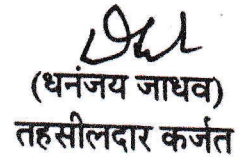 (धनंजय जाधव)
तहसीलदार कर्जत